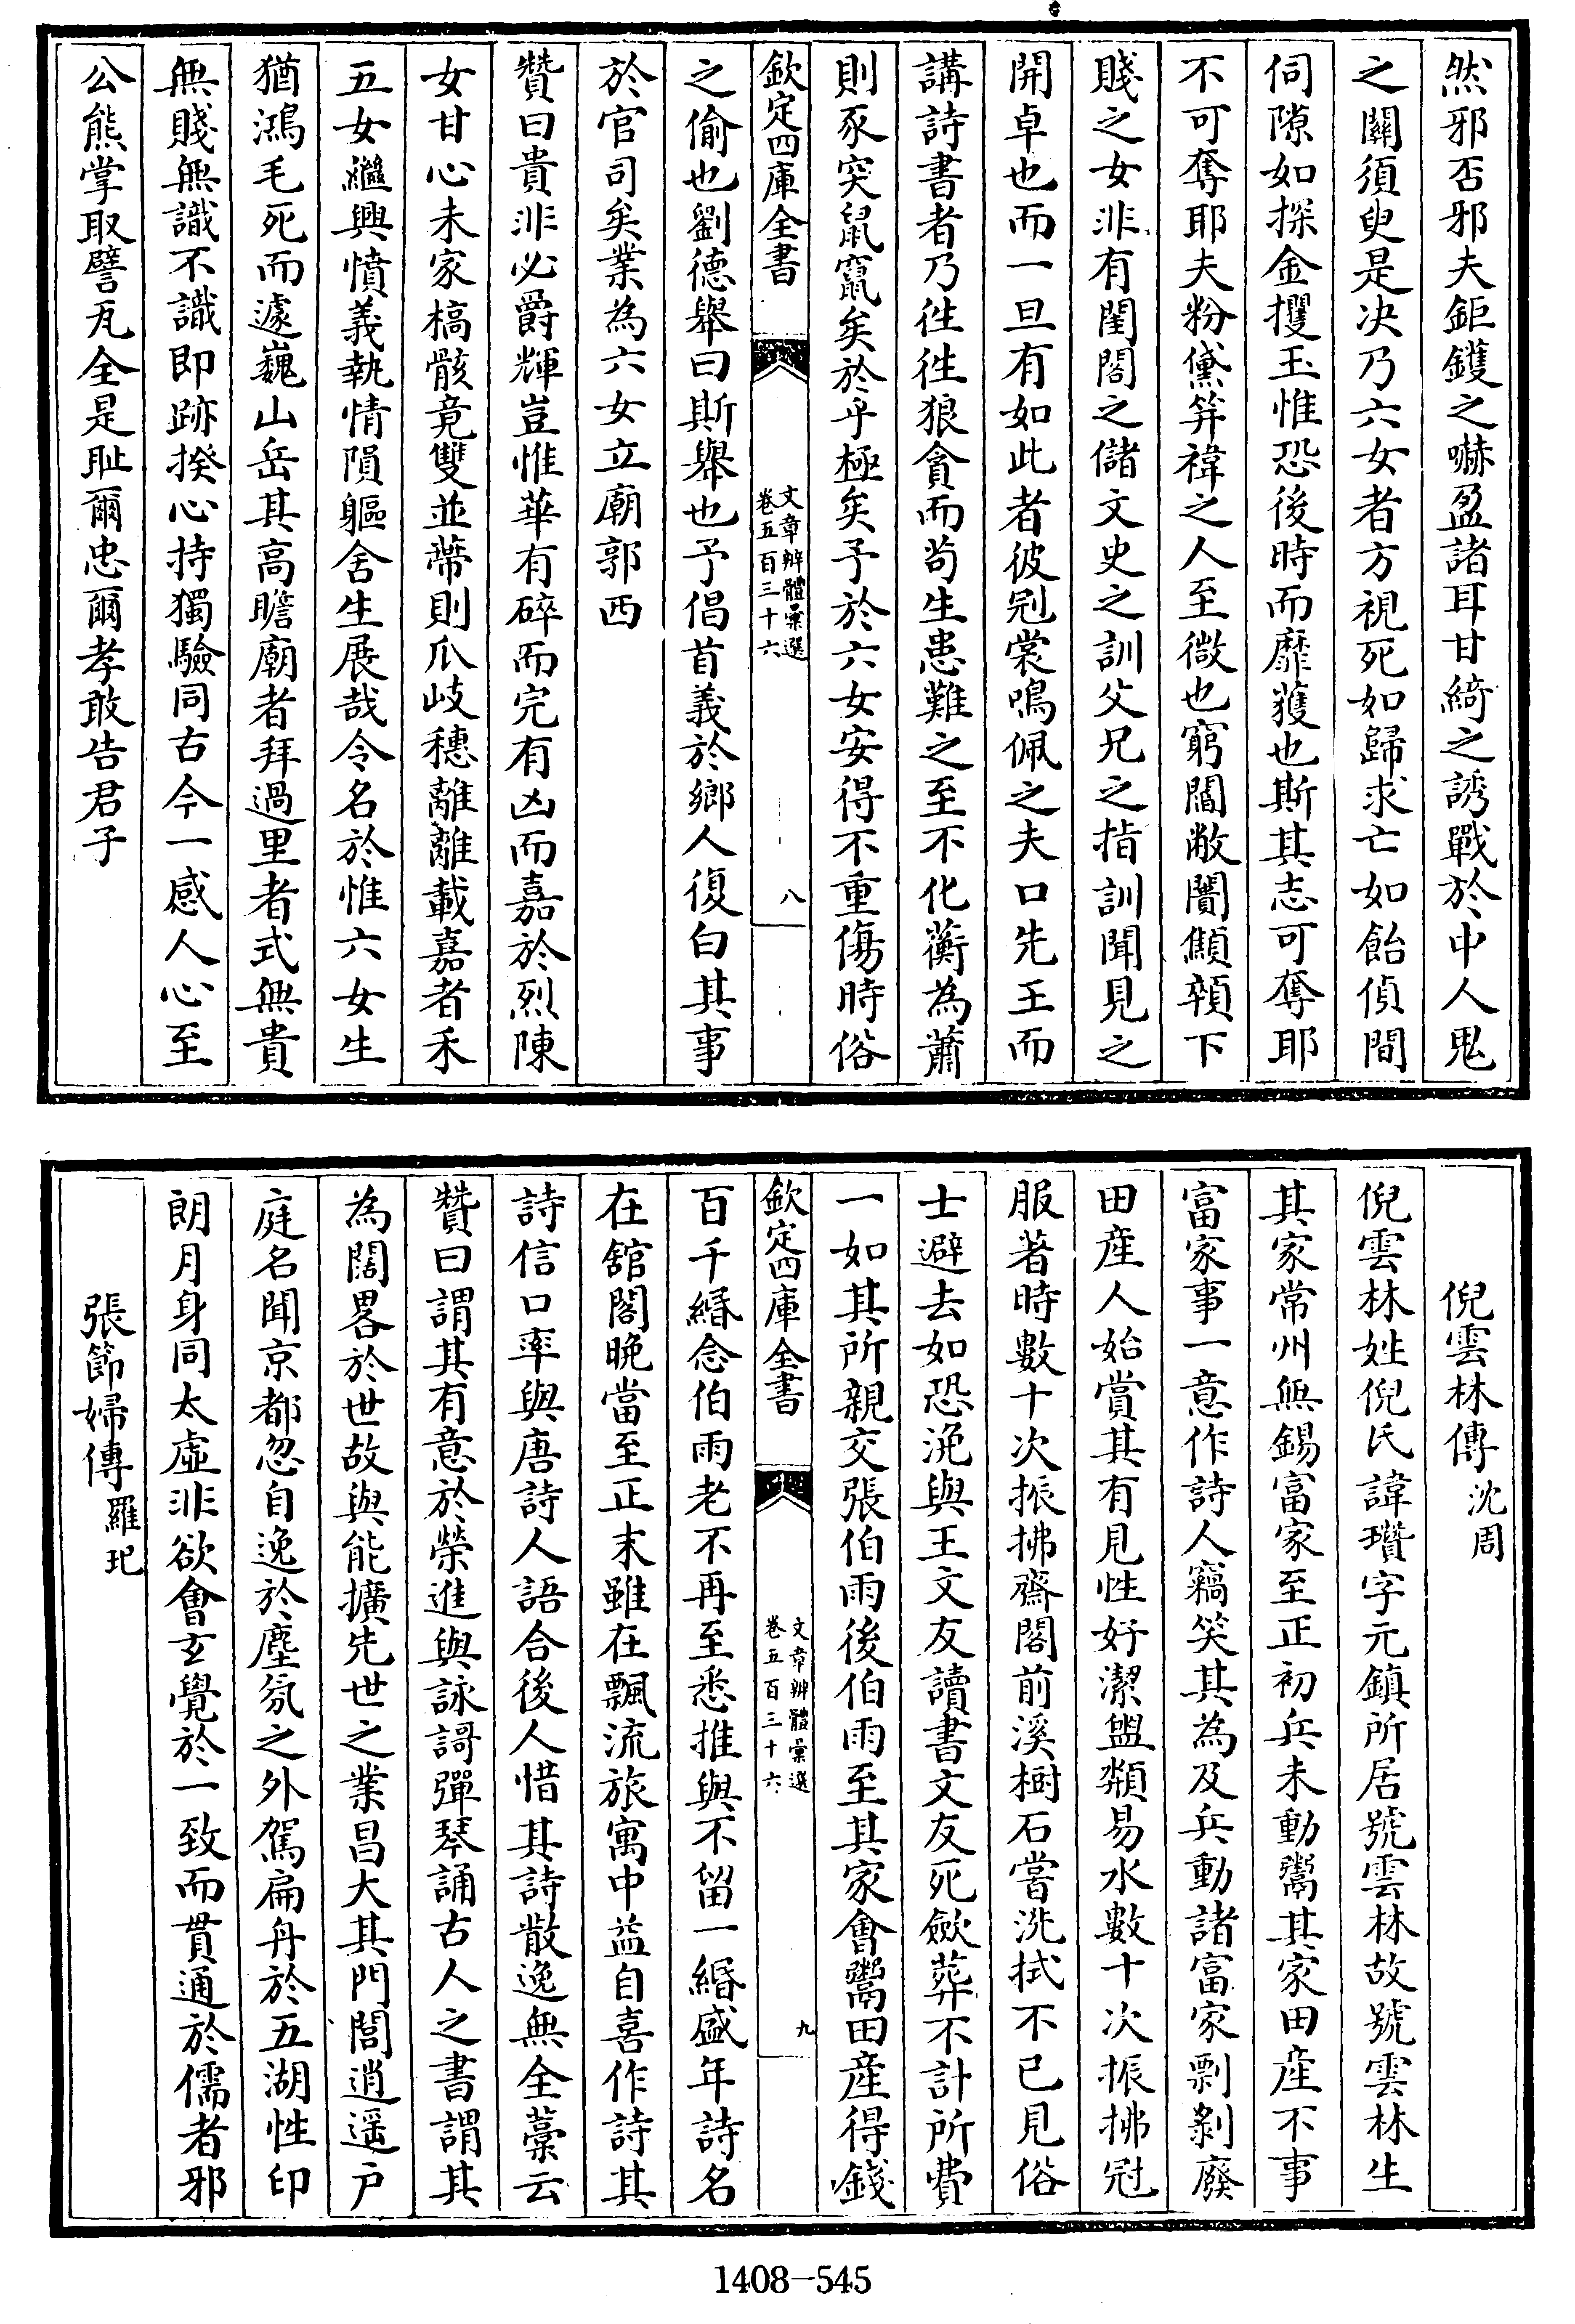 然邪否邪夫鉅鑊之嚇盈諸耳甘綺之誘戰於中人鬼
之關須臾是决乃六女者方視死如歸求亡如飴偵間
伺隙如探金攫玉惟恐後時而靡獲也斯其志可奪耶
不可奪耶夫粉黛笄褘之人至微也窮閻敝闠顦顇下
賤之女非有閨閤之儲文史之訓父兄之指訓聞見之
開卓也而一旦有如此者彼冠裳鳴佩之夫口先王而
講詩書者乃徃徃狼貪而苟生患難之至不化蘅為蕭
則豕突鼠竄矣於乎極矣予於六女安得不重傷時俗
欽定四庫全書
文章辨體彙選
卷五百三十六
八
之偷也劉德舉曰斯舉也予倡首義於鄉人復白其事
於官司矣業為六女立廟郭西
贊曰貴非必爵輝豈惟華有碎而完有凶而嘉於烈陳
女甘心未家槁骸竟雙並蔕則爪岐穗離離載嘉者禾
五女繼興憤義執情隕軀舍生展哉令名於惟六女生
猶鴻毛死而遽巍山岳其高瞻廟者拜過里者式無貴
無賤無識不識即跡揆心持獨驗同古今一感人心至
公熊掌取譬瓦全是耻爾忠爾孝敢告君子
倪雲林傳 沈周
倪雲林姓倪氏諱瓚字元鎮所居號雲林故號雲林生
其家常州無錫富家至正初兵未動鬻其家田産不事
富家事一意作詩人竊笑其為及兵動諸富家剽剝廢
田産人始賞其有見性好潔盥頮易水數十次振拂冠
服著時數十次振拂齋閣前溪樹石嘗洗拭不已見俗
士避去如恐浼與王文友讀書文友死斂葬不計所費
一如其所親交張伯雨後伯雨至其家會鬻田産得錢
欽定四庫全書
文章辨體彙選
卷五百三十六
九
百千緡念伯雨老不再至悉推與不留一緡盛年詩名
在舘閣晚當至正末雖在飄流旅寓中益自喜作詩其
詩信口率與唐詩人語合後人惜其詩散逸無全藁云
贊曰謂其有意於榮進與詠謌彈琴誦古人之書謂其
為闊畧於世故與能擴先世之業昌大其門閭逍遥户
庭名聞京都忽自逸於塵氛之外駕扁舟於五湖性印
朗月身同太虛非欲會玄覺於一致而貫通於儒者邪
張節婦傳 羅玘
1408-545